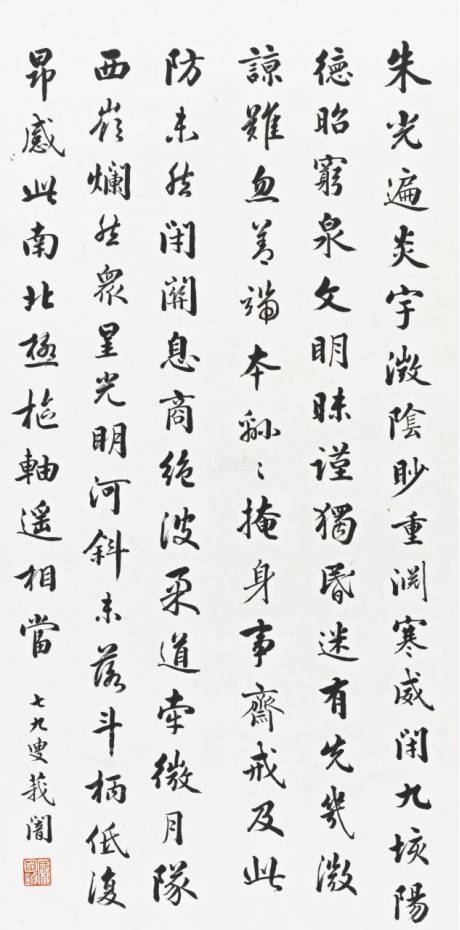 朱光遍炎宇微陰眇重渕寒威閉九垓陽
德昭窮泉文明昧謹獨昬迷有先幾微
諒難忽善端本緜〻掩身事齋戒及此
防未然閉關息商絶彼柔道牽微月隊
西嶺爛然眾星光明河斜未落斗柄低復
昂感此南北極樞軸遥相當
七九叟莪闇